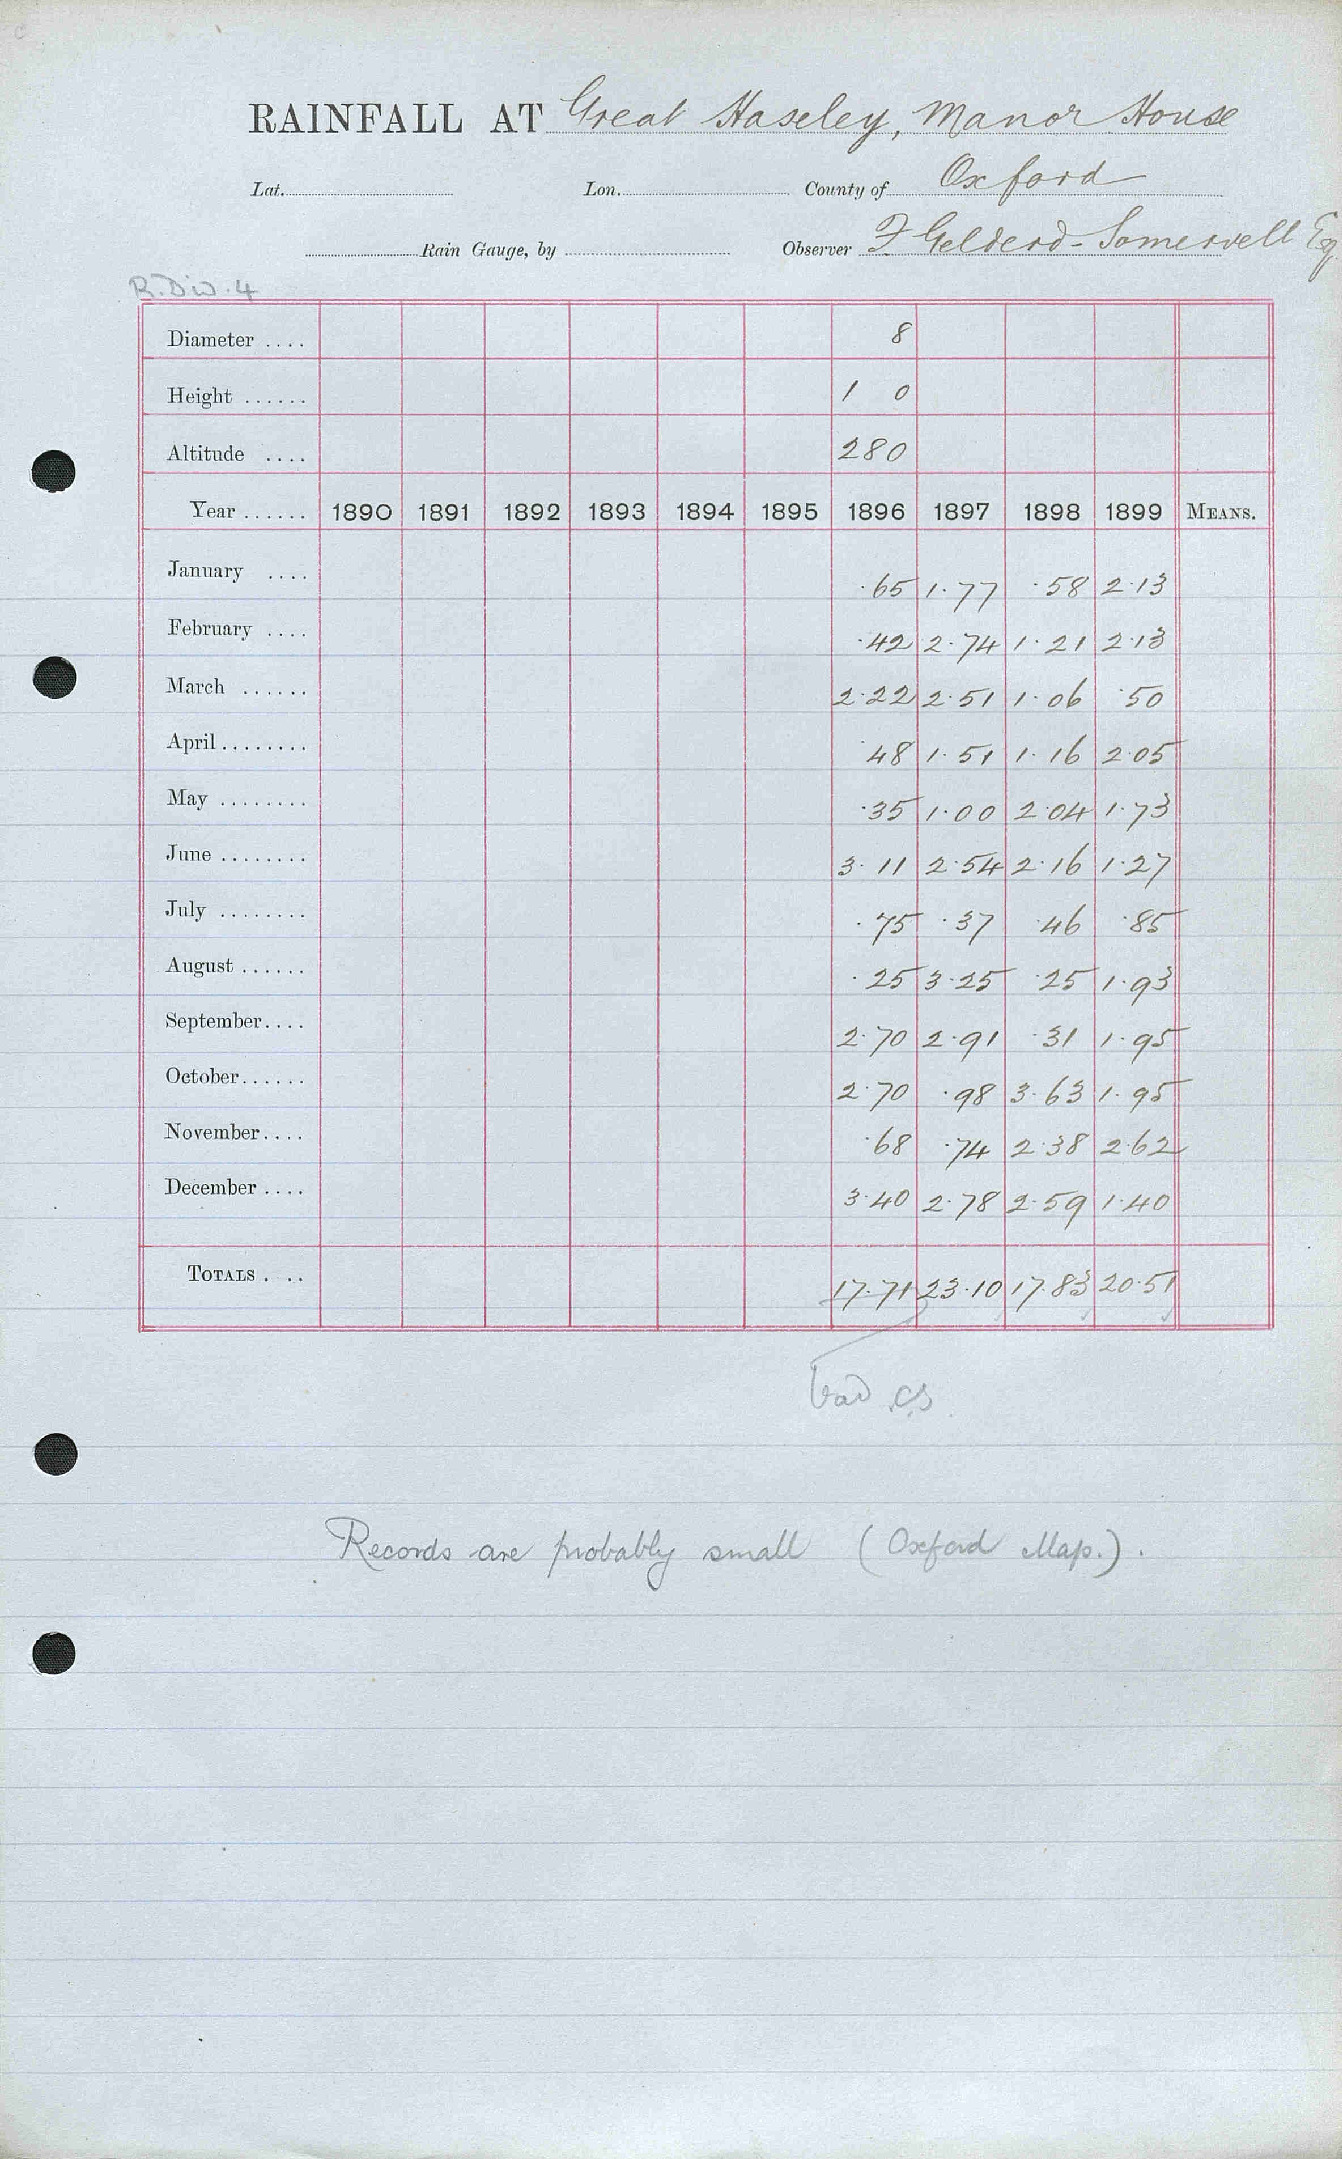 RAINFALL AT Great Haseley, Manor House
Lat. Lon. County of Oxford
Rain Gauge, by Observer F Gelderd-Somervell Esq
R. Div. 4
Diameter .... 8
Height ...... 1 0
Altitude .... 280
Year ...... 1890 1891 1892 1893 1894 1895 1896 1897 1898 1899 MEANS.
January .... .65 1.77 .58 2.13
February .... .42 2.74 1.21 2.13
March ...... 2.22 2.51 1.06 .50
April ........ .48 1.51 1.16 2.05
May ........ .35 1.00 2.04 1.73
June ........ 3.11 2.54 2.16 1.27
July ........ .75 .37 .46 .85
August ...... .25 3.25 .25 1.93
September.... 2.70 2.91 .31 1.95
October...... 2.70 .98 3.63 1.95
November.... .68 .74 2.38 2.62
December .... 3.40 2.78 2.59 1.40
TOTALS . .. 17.71 23.10 17.83 20.51
bad
Records are probably small (Oxford Map.).